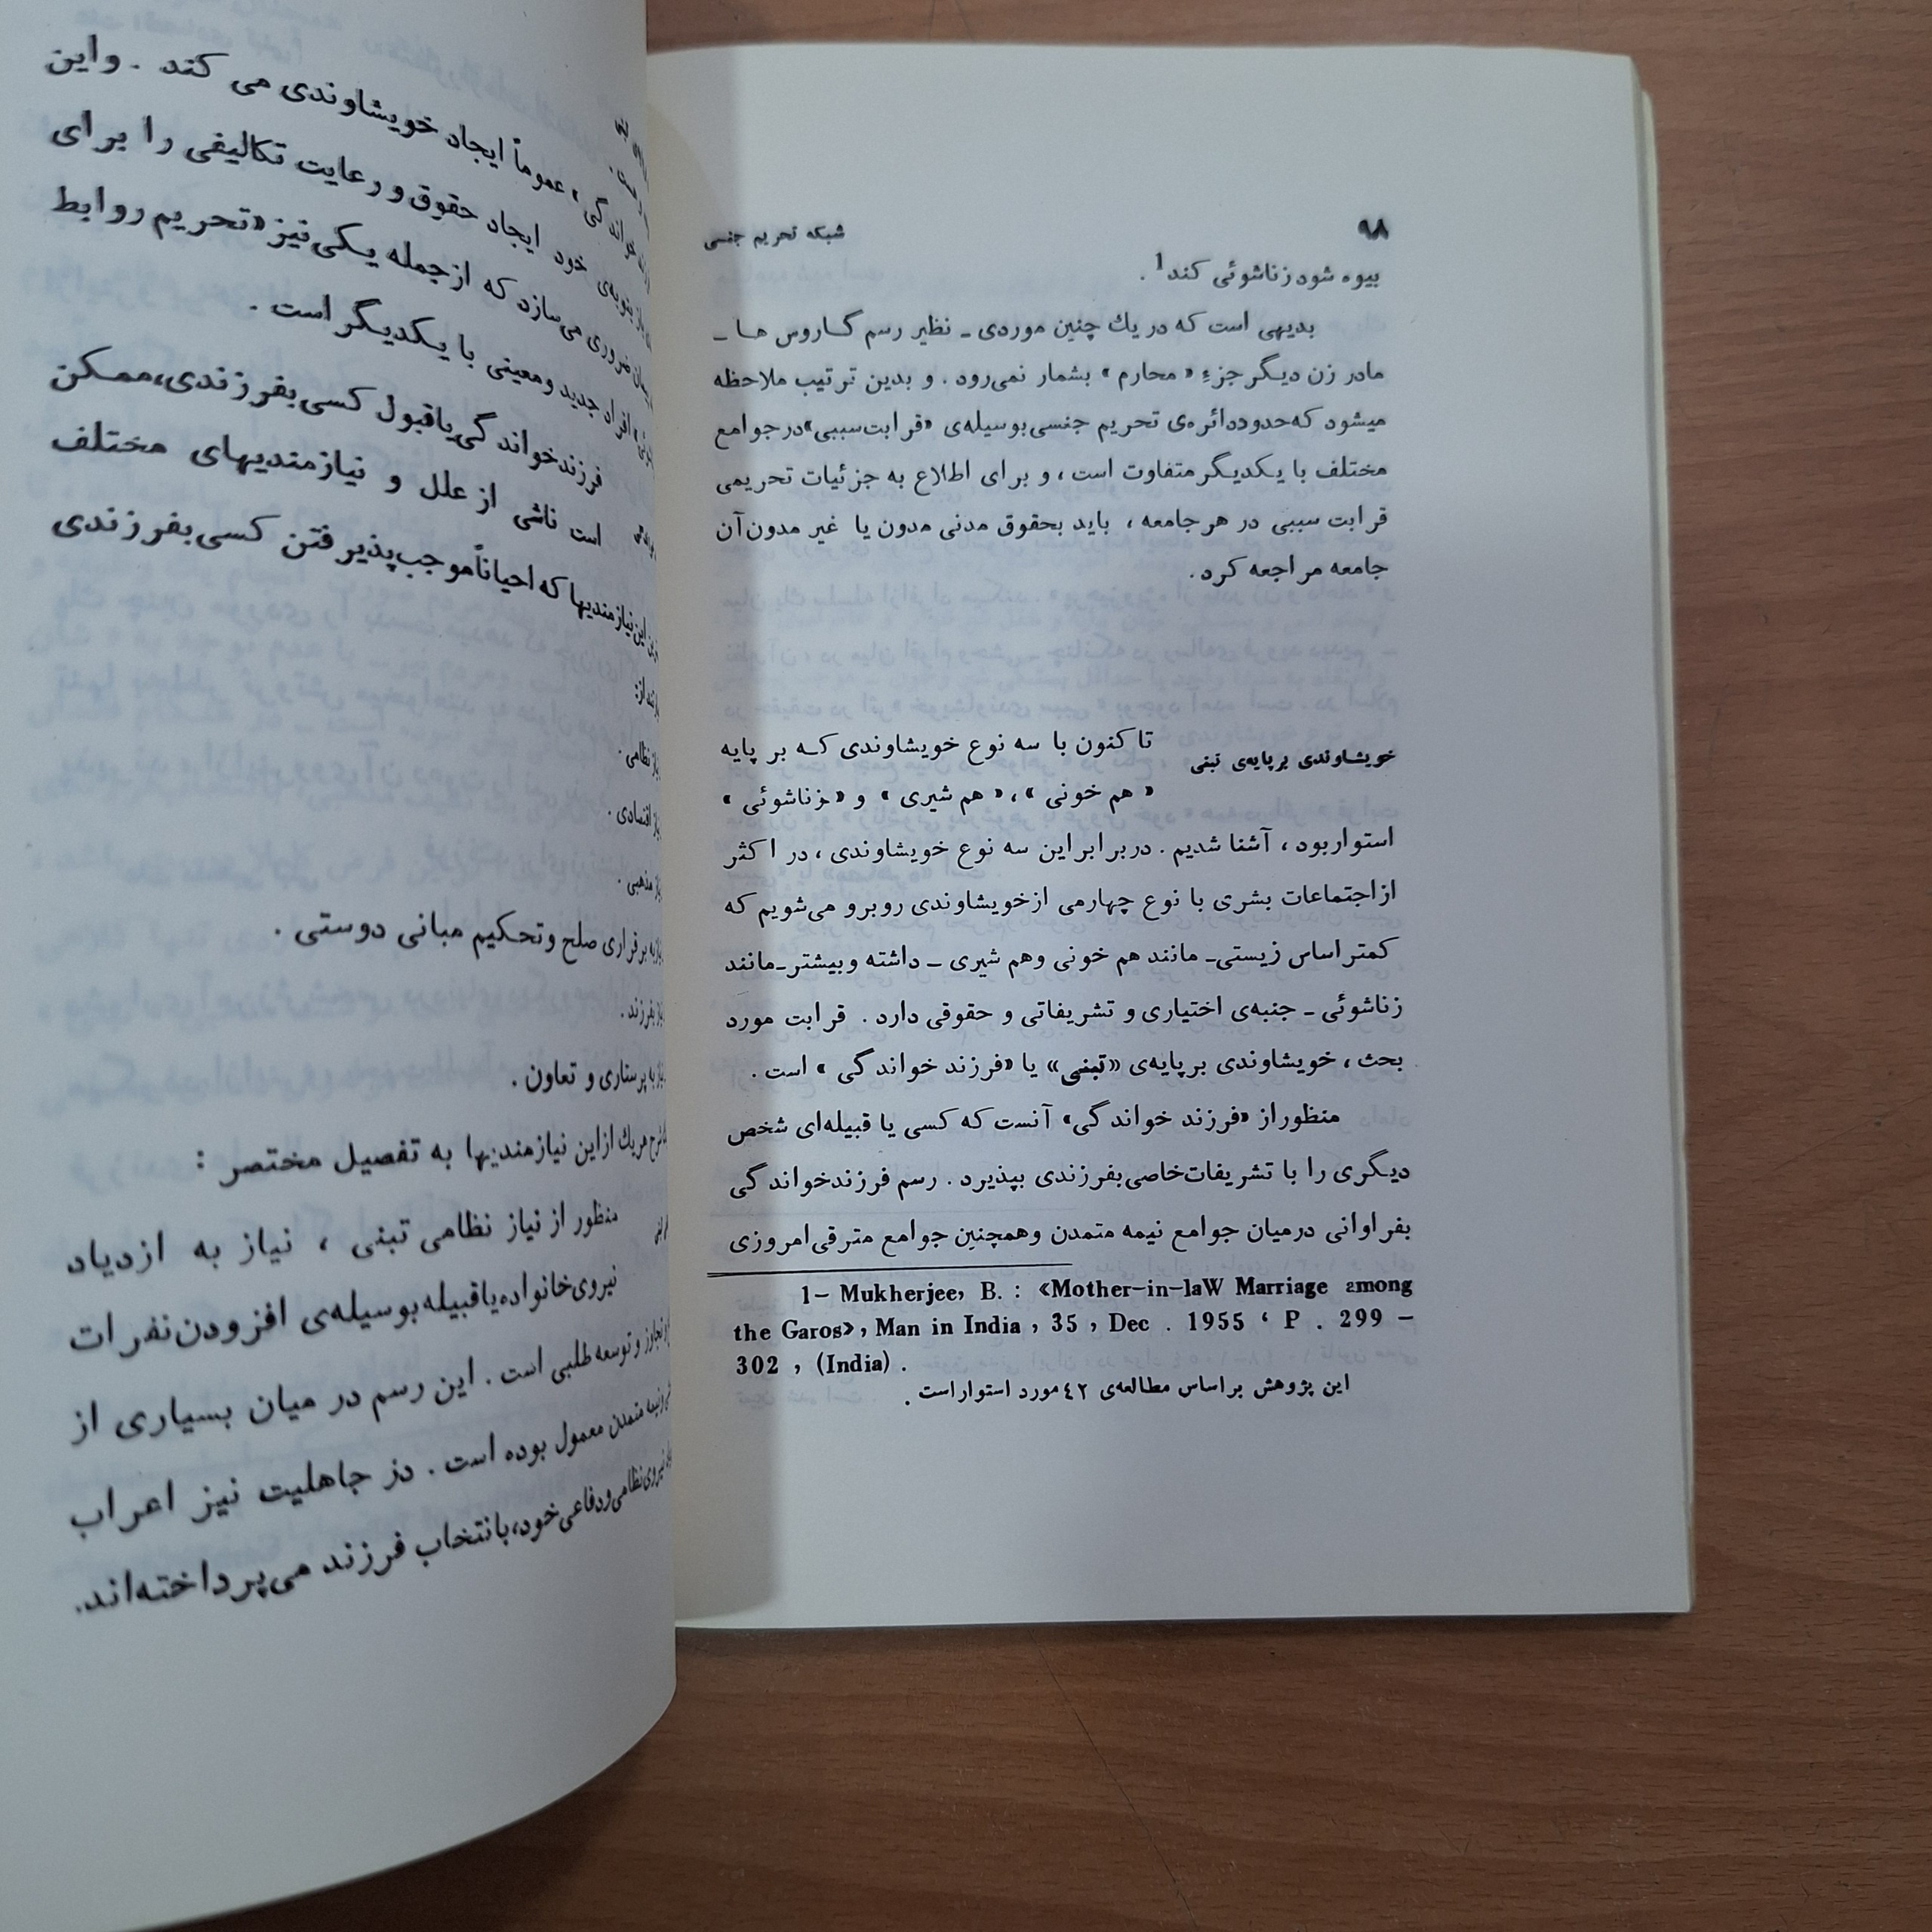 ۹۸
شبکه تحریم جنسی
بیوه شود زناشوئی کند1 .
بدیهی است که در یك چنین موردی ـ نظیر رسم گـاروس هـا ـ
مادر زن دیـگر جزءِ « محارم » بشمار نمی‌رود . و بدین ترتیب ملاحظه
میشود که حدود دائره‌ی تحریم جنسی بوسیله‌ی «قرابت سببی» در جوامع
مختلف با یـکدیـگر متفاوت است ، و برای اطلاع به جزئیات تحریمی
قرابت سببی در هر جامعه ، باید بحقوق مدنی مدون یا غیر مدون آن
جامعه مراجعه کرد .
خویشـاوندی بر پایه‌ی تبنی
تا کنون با سه نوع خویشاوندی کـه بر پایه
« هم خونی » ، « هم شیری » و « زناشوئی »
استوار بود ، آشنا شدیم . در برابر این سه نوع خویشاوندی ، در اکثر
از اجتماعات بشری با نوع چهارمی از خویشاوندی روبرو می‌شویم که
کمتر اساس زیستی ـ مانند هم خونی و هم شیری ـ داشته و بیشتر ـ مانند
زناشوئی ـ جنبه‌ی اختیاری و تشریفاتی و حقوقی دارد . قرابت مورد
بحث ، خویشاوندی بر پایه‌ی «تبنی» یا «فرزند خواندگی » است .
منظور از «فرزند خواندگی» آنست که کسی یا قبیله‌ای شخص
دیـگری را با تشریفات خاصی بفرزندی بپذیرد . رسم فرزندخواندگی
بفراوانی در میان جوامع نیمه متمدن و همچنین جوامع مترقی امروزی
1- Mukherjee, B. : «Mother-in-laW Marriage among
the Garos», Man in India , 35 , Dec . 1955 ‘ P . 299 -
302 , (India) .
این پژوهش بر اساس مطالعه‌ی ٤٢ مورد استوار است .
خواندگی » عموماً ایجاد خویشاوندی می کند . واین
خود ایجاد حقوق و رعایت تکالیفی را برای
ضروری می‌سازد که از جمله یـکی نیز «تحریم روابط
افراد جدید و معینی با یـکدیـگر است .
فرزندخواندگی یا قبول کسی بفرزندی، ممـکن
است ناشی از علل و نیازمندیهای مختلف
این نیازمندیها که احیاناً موجب پذیرفتن کسی بفرزندی
نظامی .
اقتصادی .
مذهبی .
به برقراری صلح و تحکیم مبانی دوستی .
بفرزند .
به پرستاری و تعاون .
شرح هر یك از این نیازمندیها به تفصیل مختصر :
منظور از نیاز نظامی تبنی ، نیاز به ازدیاد
نیروی خانواده یا قبیله بوسیله‌ی افزودن نفرات
تجاوز و توسعه طلبی است . این رسم در میان بسیاری از
نیمه متمدن معمول بوده است . در جاهلیت نیز اعراب
نیروی نظامی و دفاعی خود، بانتخاب فرزند می‌پرداخته‌اند.